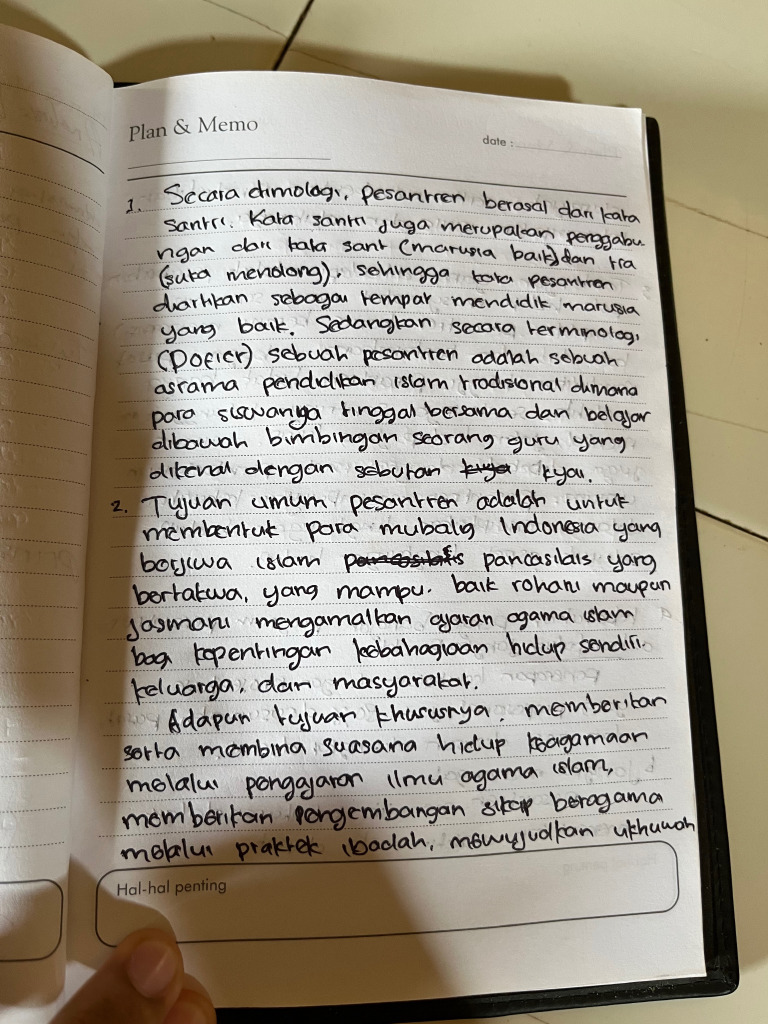 Plan & Memo
date :
1. Secara etimologi, pesantren berasal dari kata
santri. Kata santri juga merupakan penggabu
ngan dari kata sant (manusia baik) dan tra
(suka menolong), sehingga kata pesantren
diartikan sebagai tempat mendidik manusia
yang baik. Sedangkan secara terminologi
(Dofier) sebuah pesantren adalah sebuah
asrama pendidikan islam tradisional dimana
para siswanya tinggal bersama dan belajar
dibawah bimbingan seorang guru yang
dikenal dengan sebutan kyai.
2. Tujuan umum pesantren adalah untuk
membentuk para mubalig Indonesia yang
berjiwa islam pancasilais yang
bertakwa, yang mampu. baik rohani maupun
jasmani mengamalkan ajaran agama islam
bagi kepentingan kebahagiaan hidup sendiri.
keluarga, dan masyarakat.
Adapun tujuan khususnya. memberikan
serta membina suasana hidup keagamaan
melalui pengajaran ilmu agama islam,
memberikan pengembangan sikap beragama
melalui praktek ibadah, mewujudkan ukhuwah
Hal-hal penting